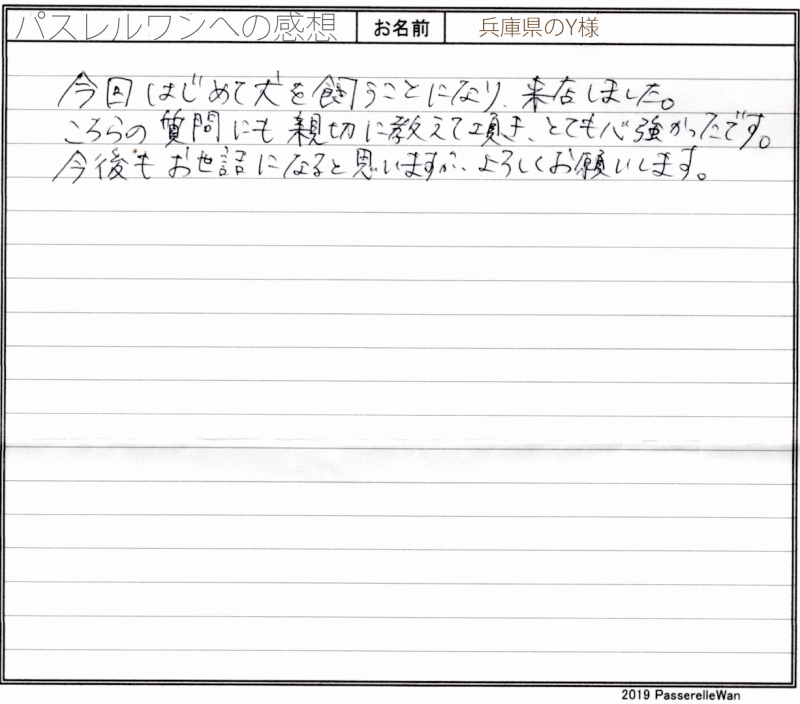 パスレルワンへの感想 お名前 兵庫県のY様
今回はじめて犬を飼うことになり、来店しました。
こちらの質問にも親切に教えて頂き、とても心強かったです。
今後もお世話になると思いますが、よろしくお願いします。
2019 PasserelleWan